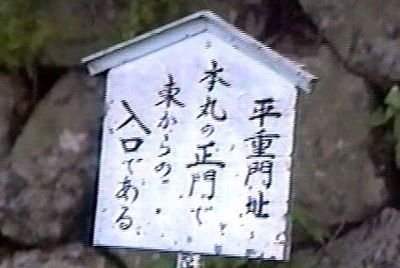 平重門址
本丸の正門で
東からの
入口である